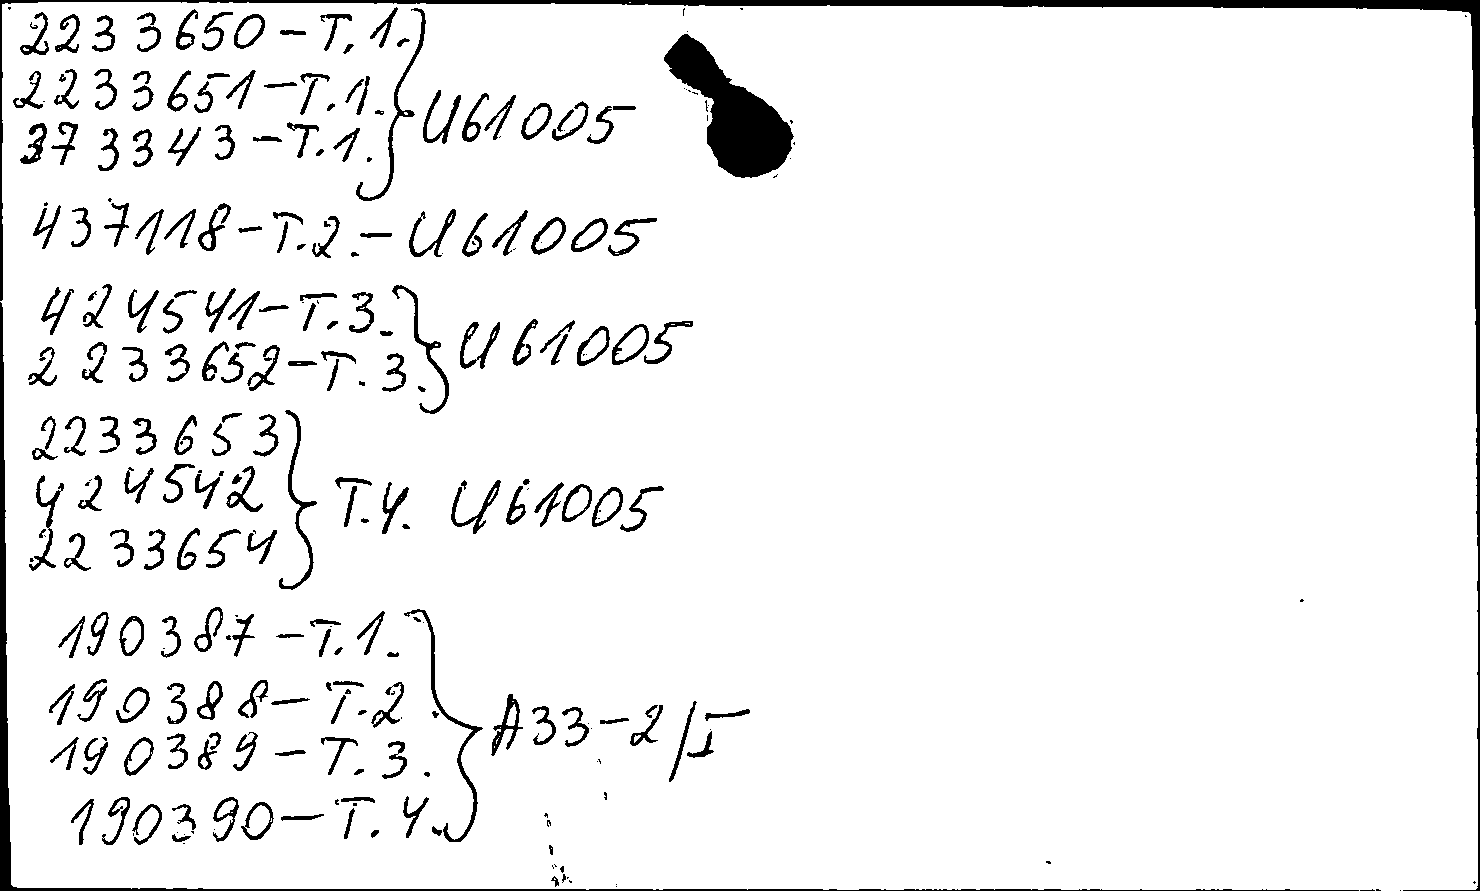 2233650 – Т. 1.
2233651 – Т. 1.
373343 – Т. 1.
И61005
437118 – Т. 2. – И61005
424541 – Т. 3.
2233652 – Т. 3.
И61005
2233653
424542
2233654
Т. 4. И61005
190387 – Т. 1.
190388 – Т. 2
190389 – Т. 3.
190390 – Т. 4.
А33–2/I